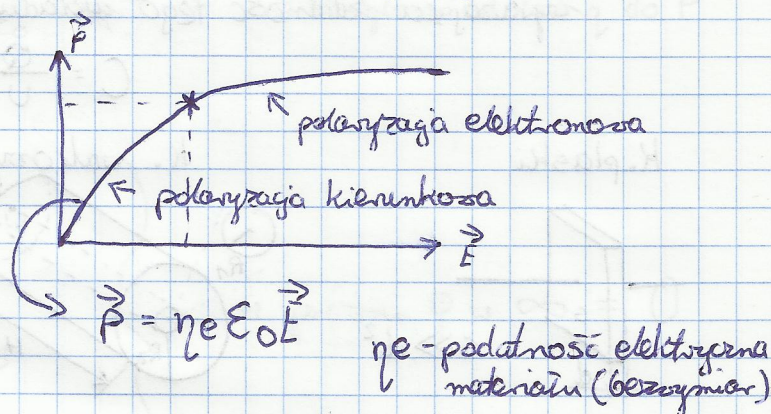 P
polaryzacja elektronowa
polaryzacja kierunkowa
E
P = ηe ε₀E
ηe - podatność elektryczna
materiału (bezwymiar)